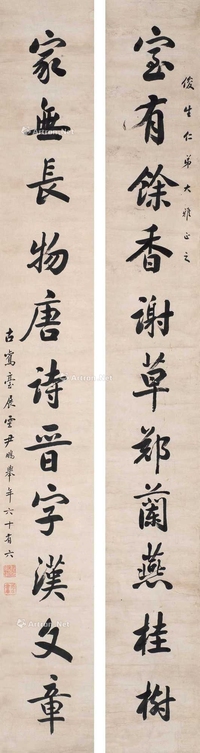 俊生仁弟大雅正之
室有餘香謝草鄭蘭燕桂樹
家無長物唐詩晉字漢文章
古臺展雲尹鵬舉年六十有六